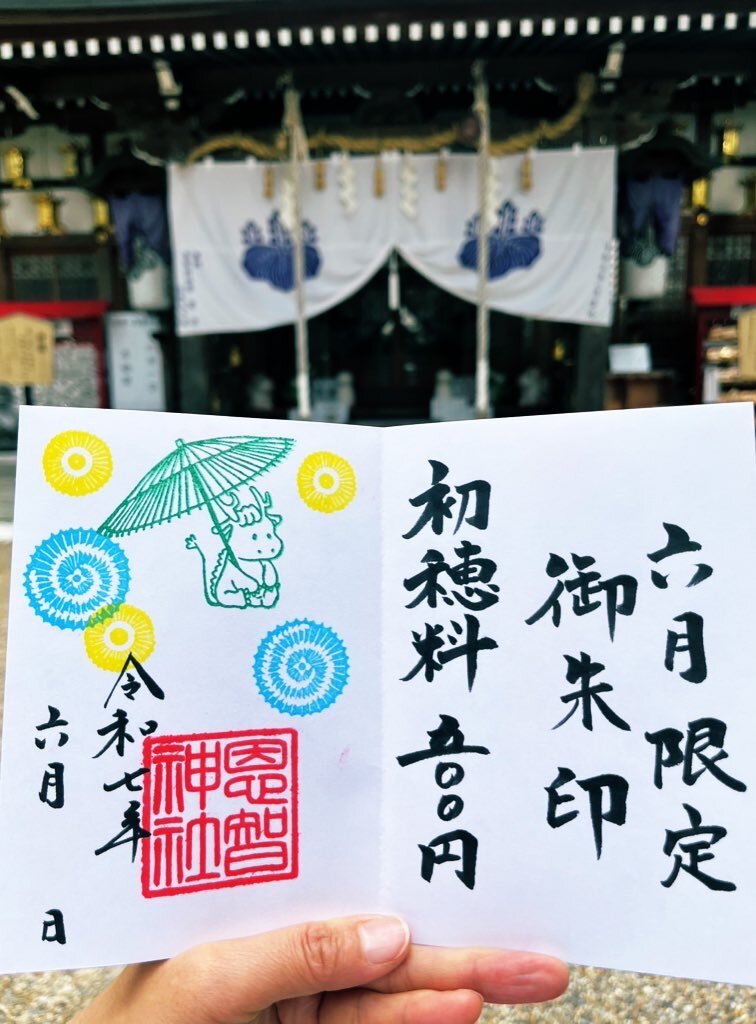 六月限定
御朱印
初穂料 五〇〇円
令和七年
六月 日
恩智
神社